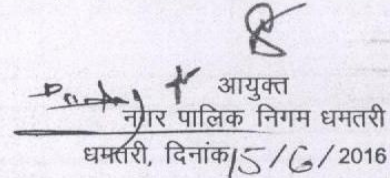 आयुक्त
नगर पालिक निगम धमतरी
धमतरी, दिनांक 15/6/2016